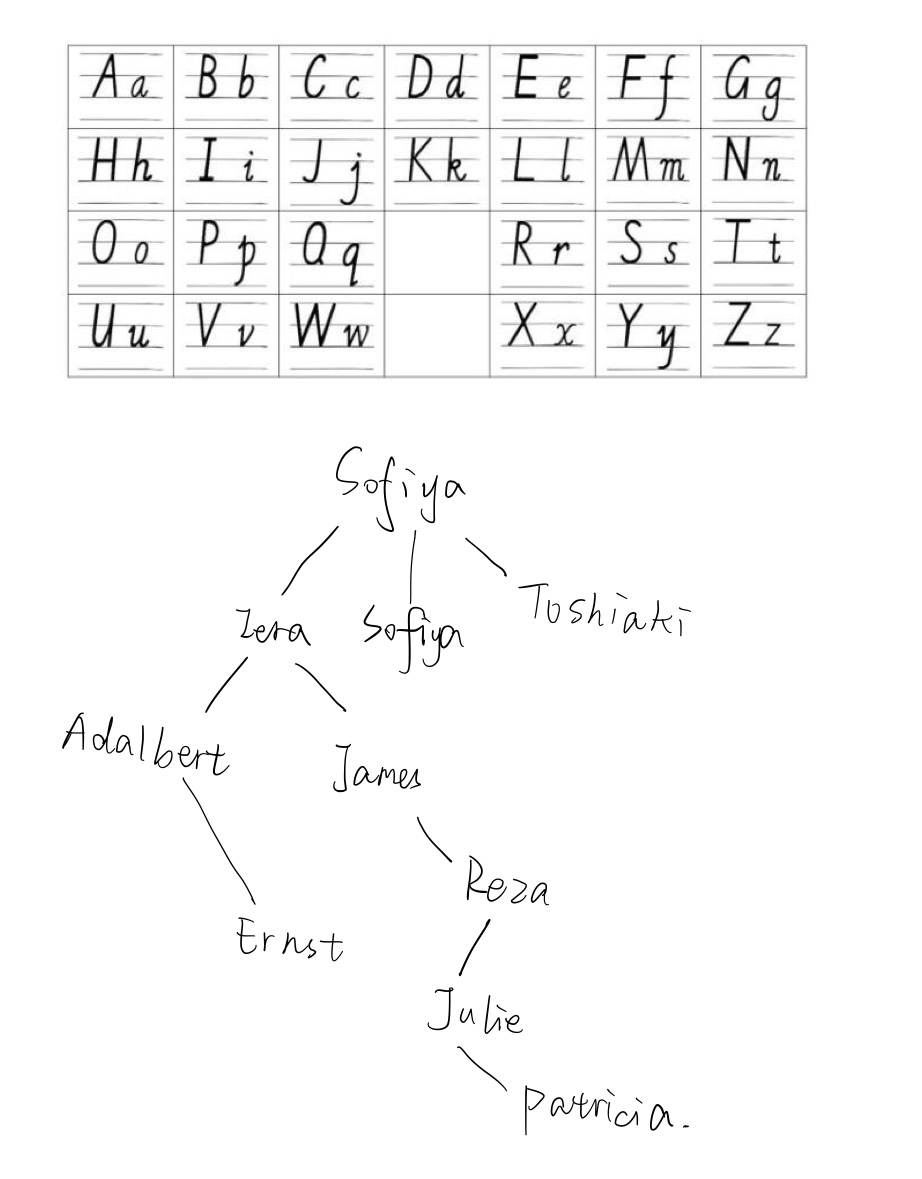 Aa Bb Cc Dd Ee Ff Gg
Hh Ii Jj Kk Ll Mm Nn
Oo Pp Qq Rr Ss Tt
Uu Vv Ww Xx Yy Zz
Sofiya
Zera Sofiya Toshiaki
Adalbert James
Reza
Ernst
Julie
Patricia.